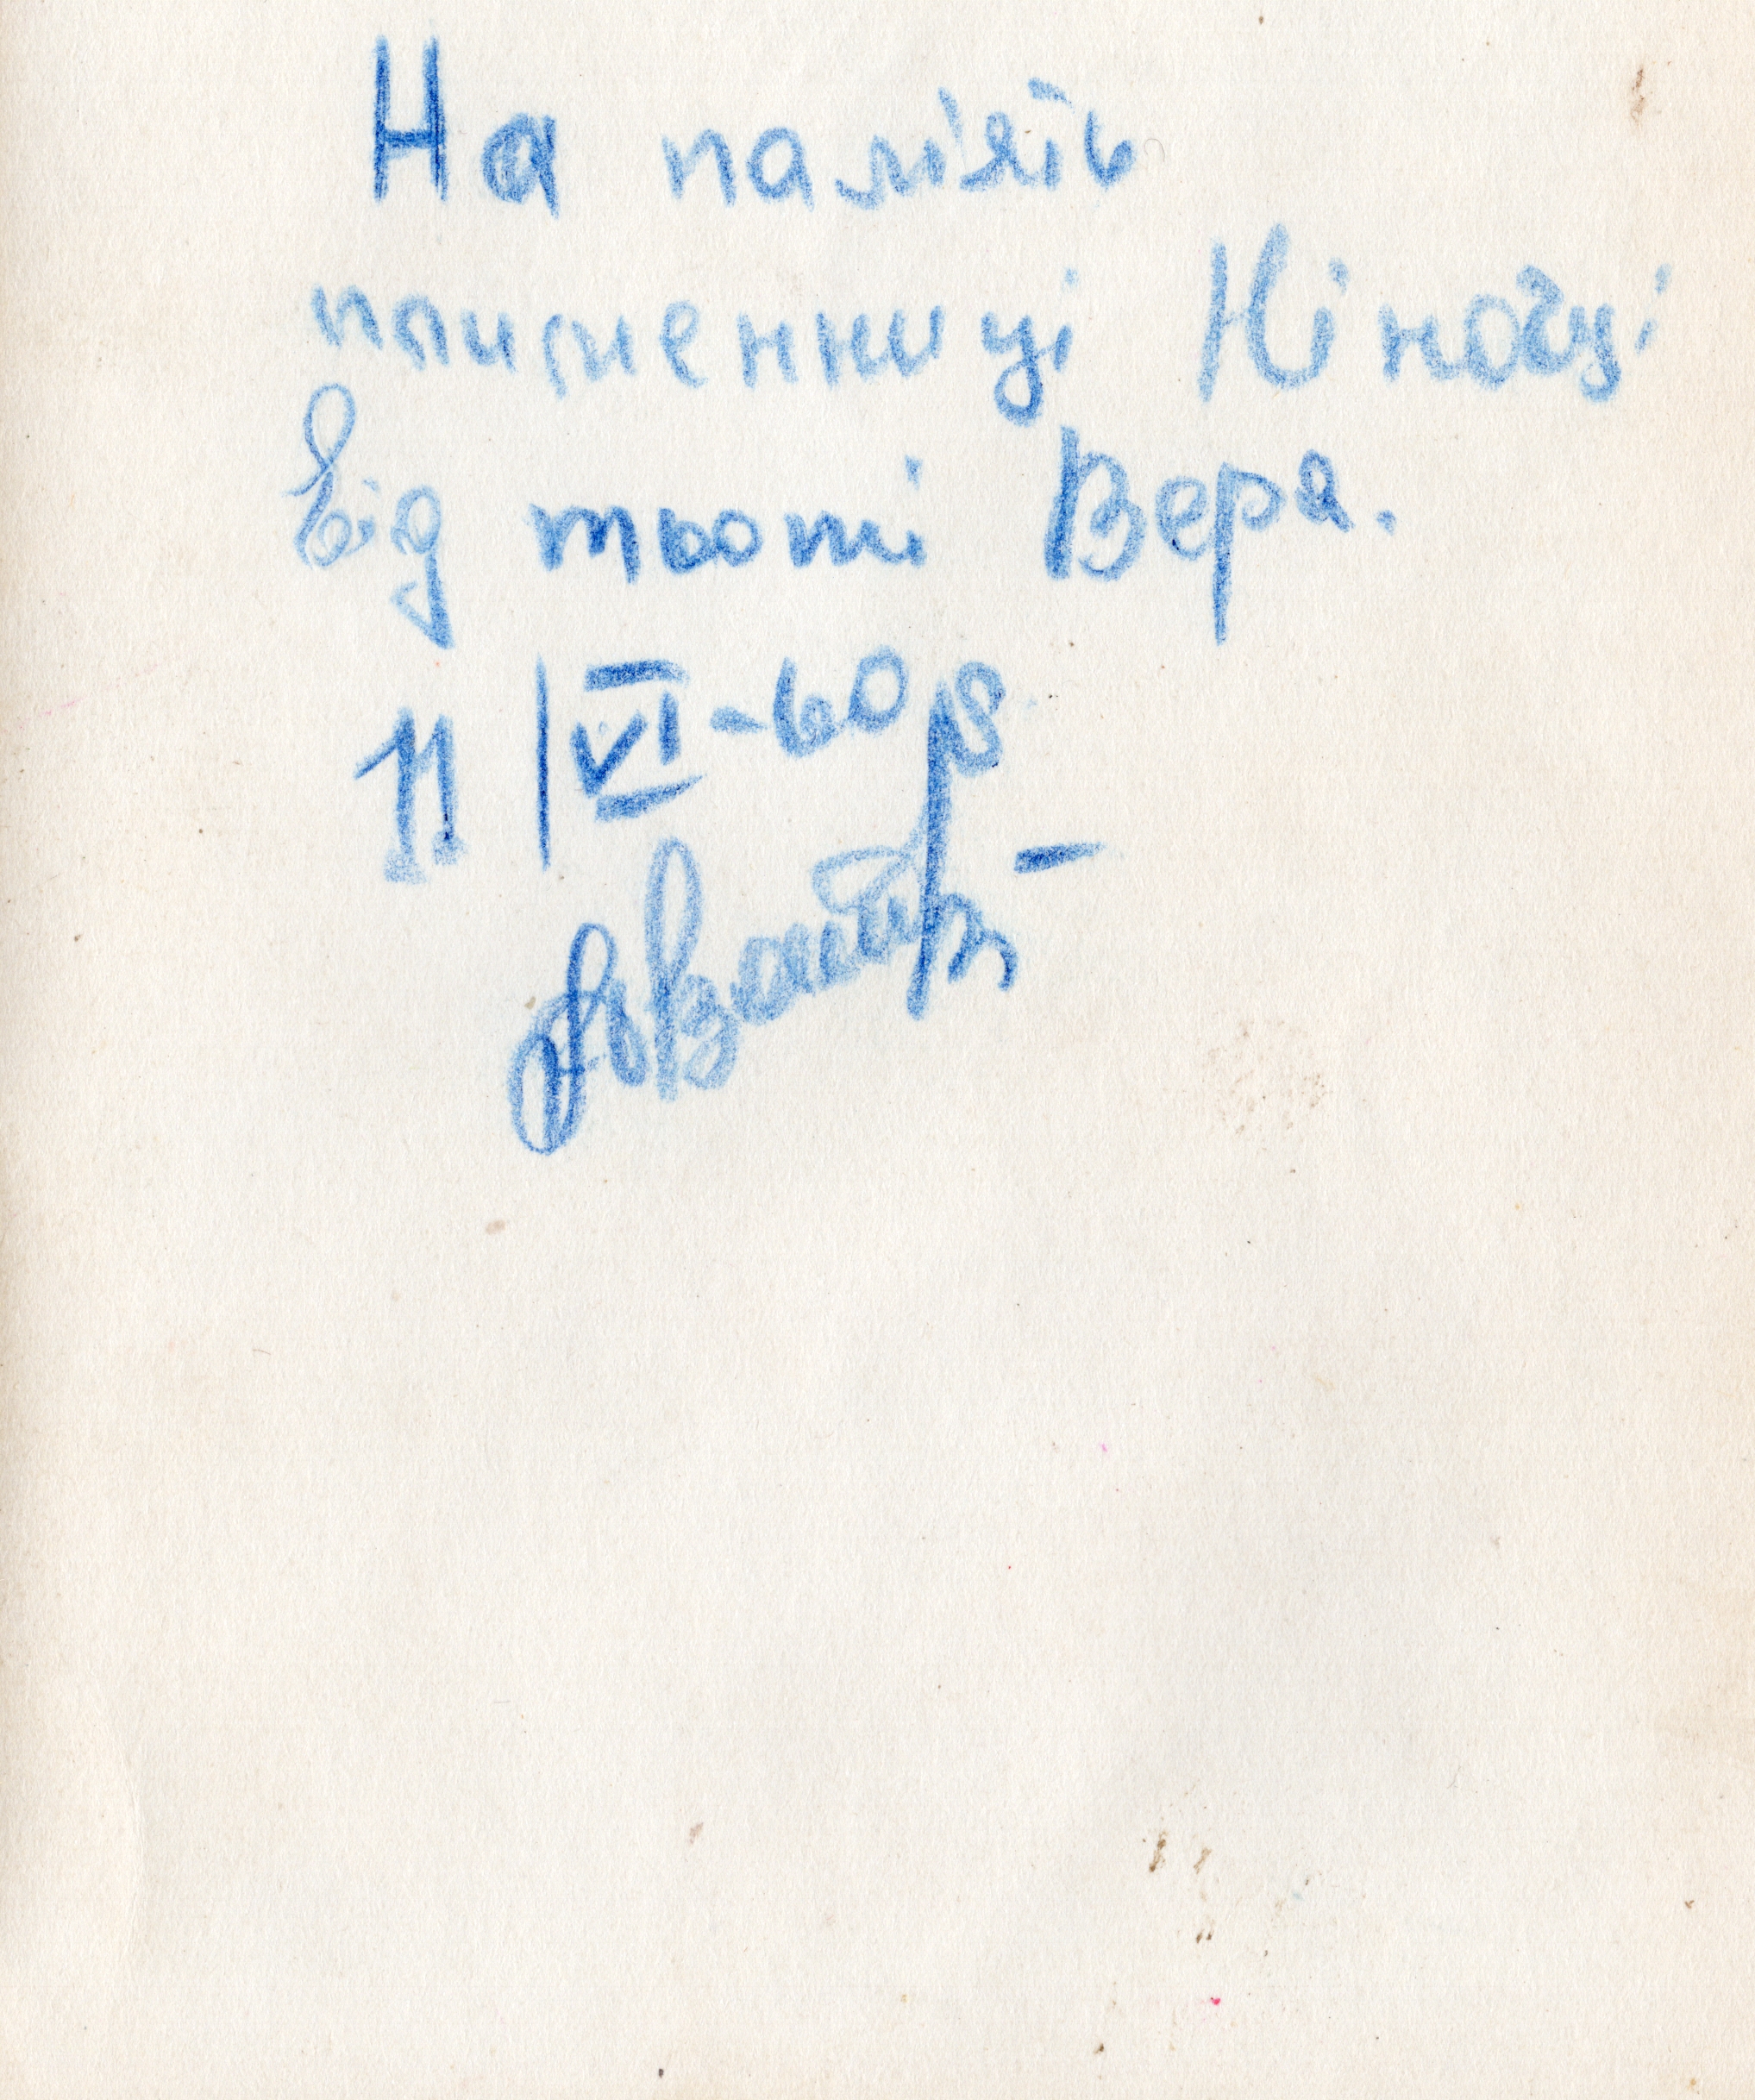 На пам'ять
племенниці Ніночці
від тьоті Вера.
11/VI-60 р